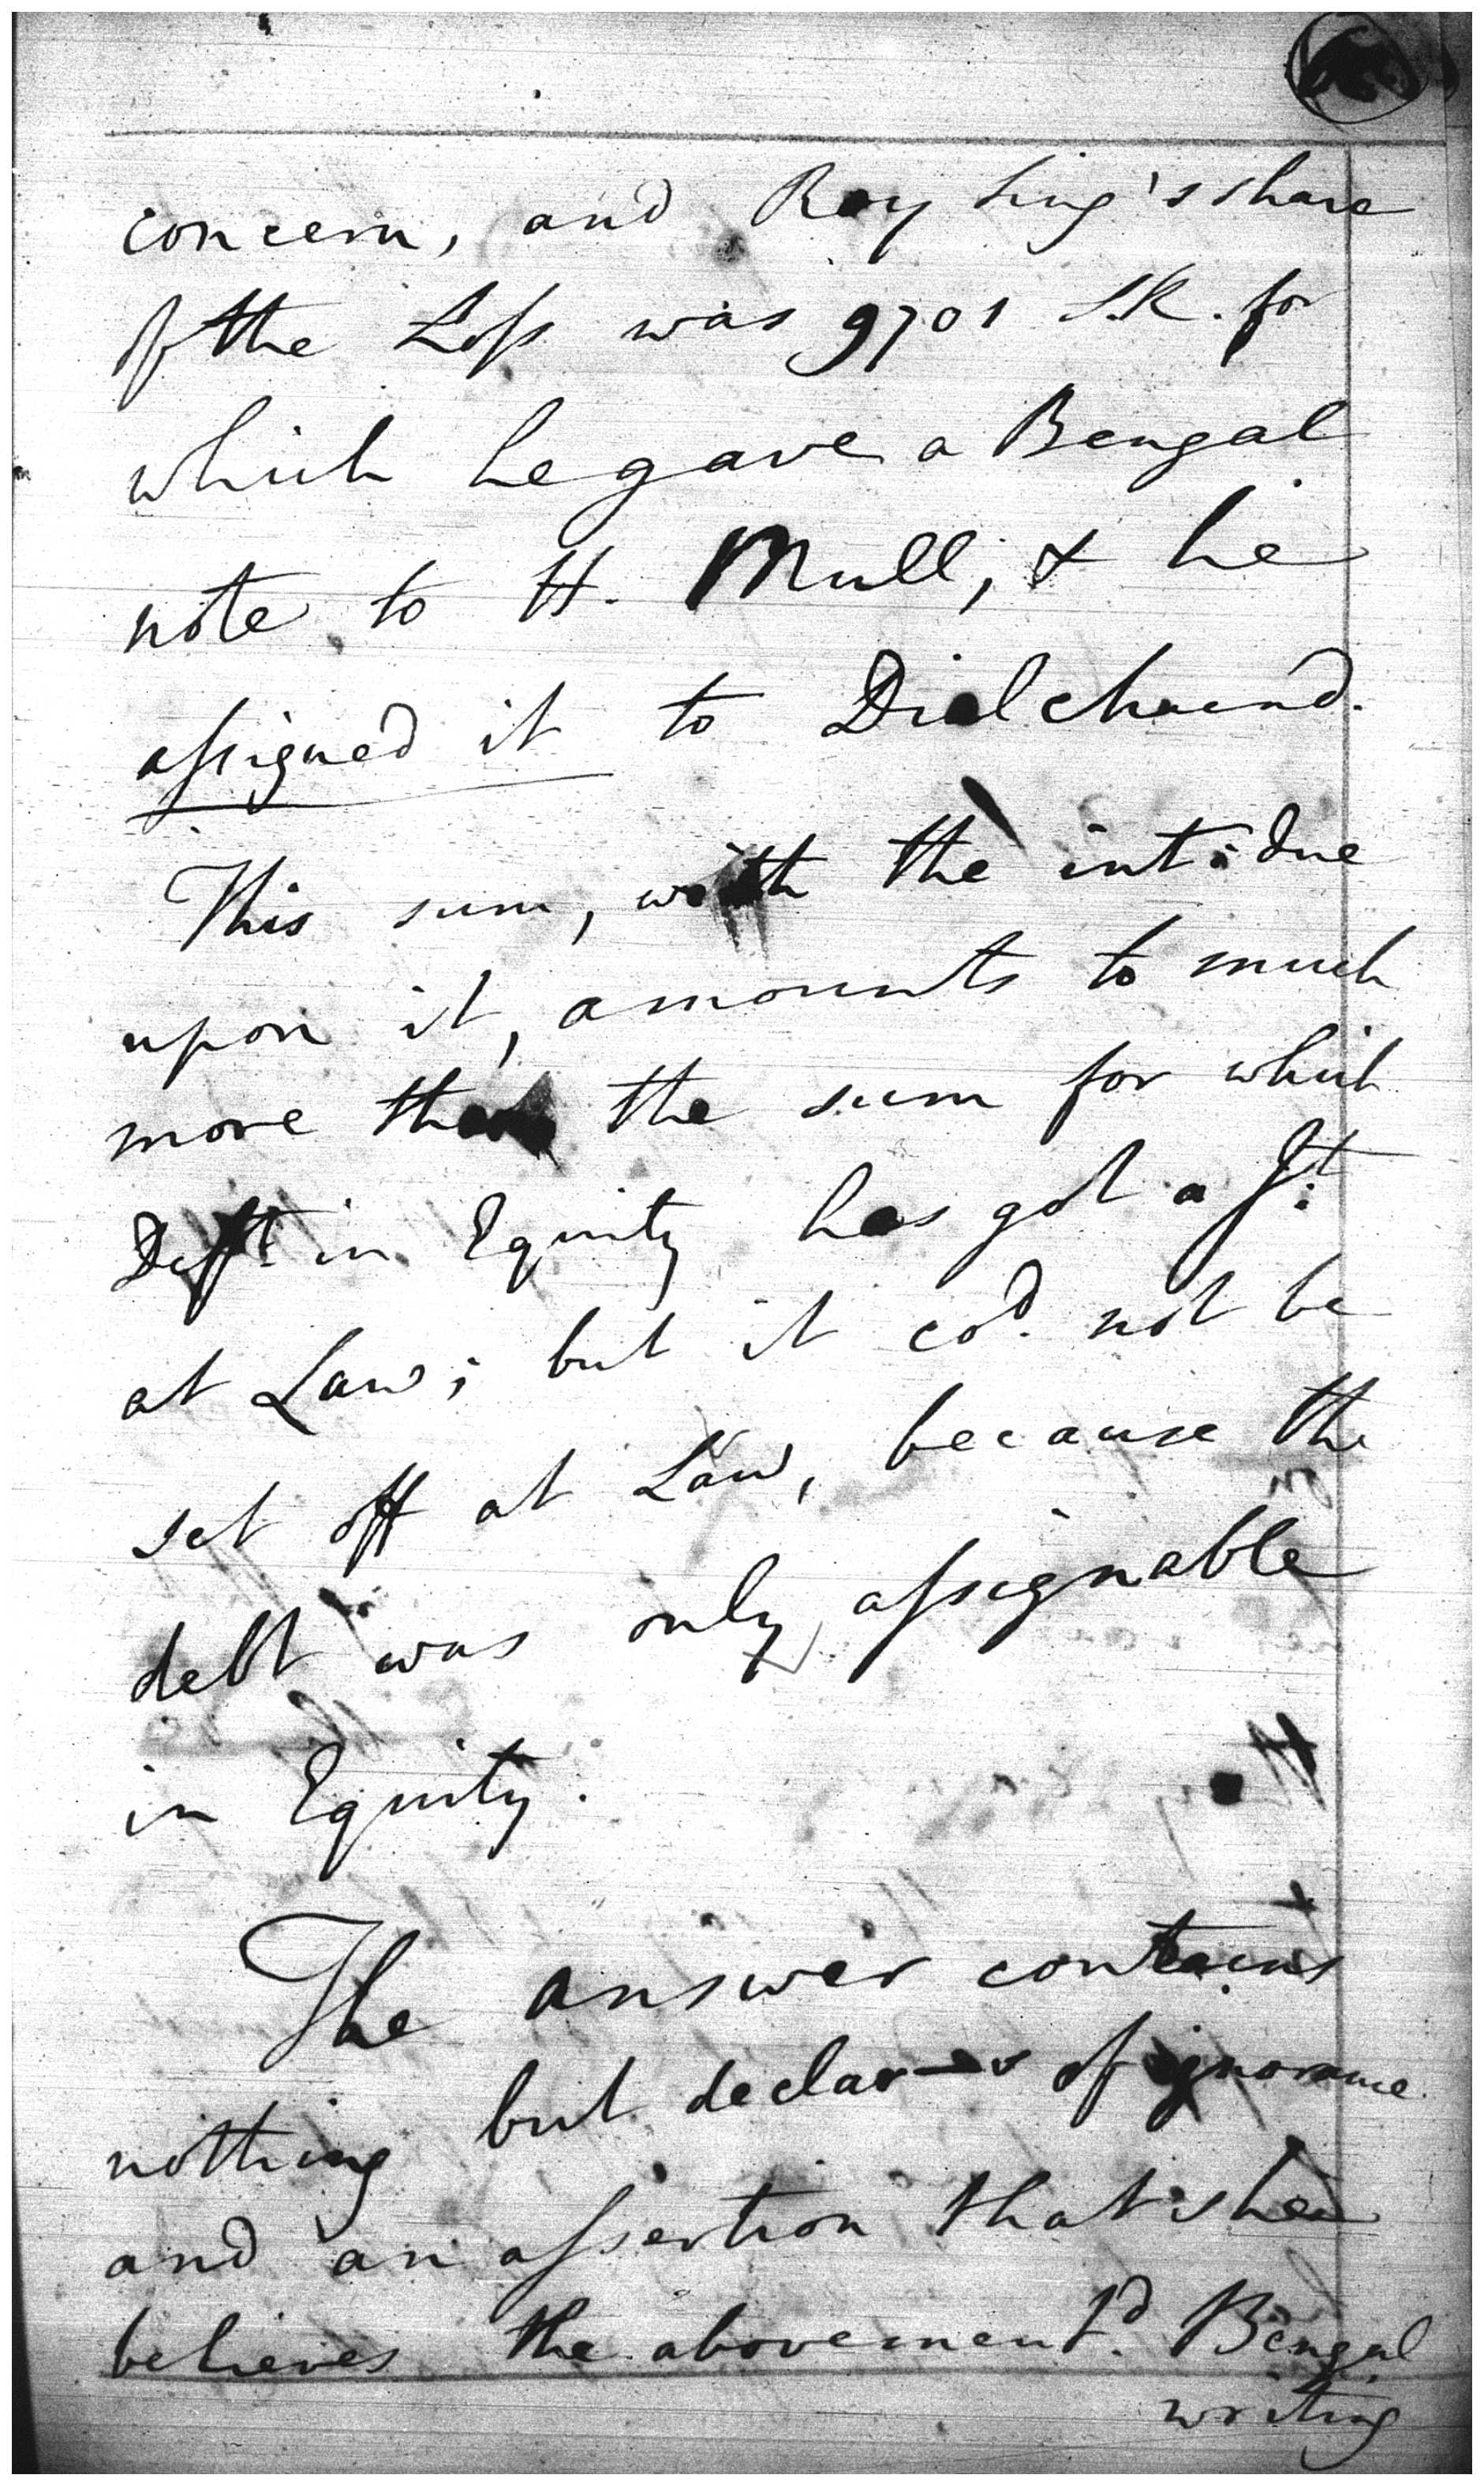 concern, and Roy Sing's share
of the Loss was 9701 S.R. for
which he gave a Bengal
note to H. Mull, & he
assigned it to Dialchaend.
This sum, with the int: due
upon it, amounts to much
more than the sum for which
Deft. in Equity has got a Jt.
at Law; but it cod. not be
set off at Law, because the
debt was only assignable
in Equity.
The answer contains
nothing but declar-s of ignorance
and an assertion that she
believes the abovement'd. Bengal
writing